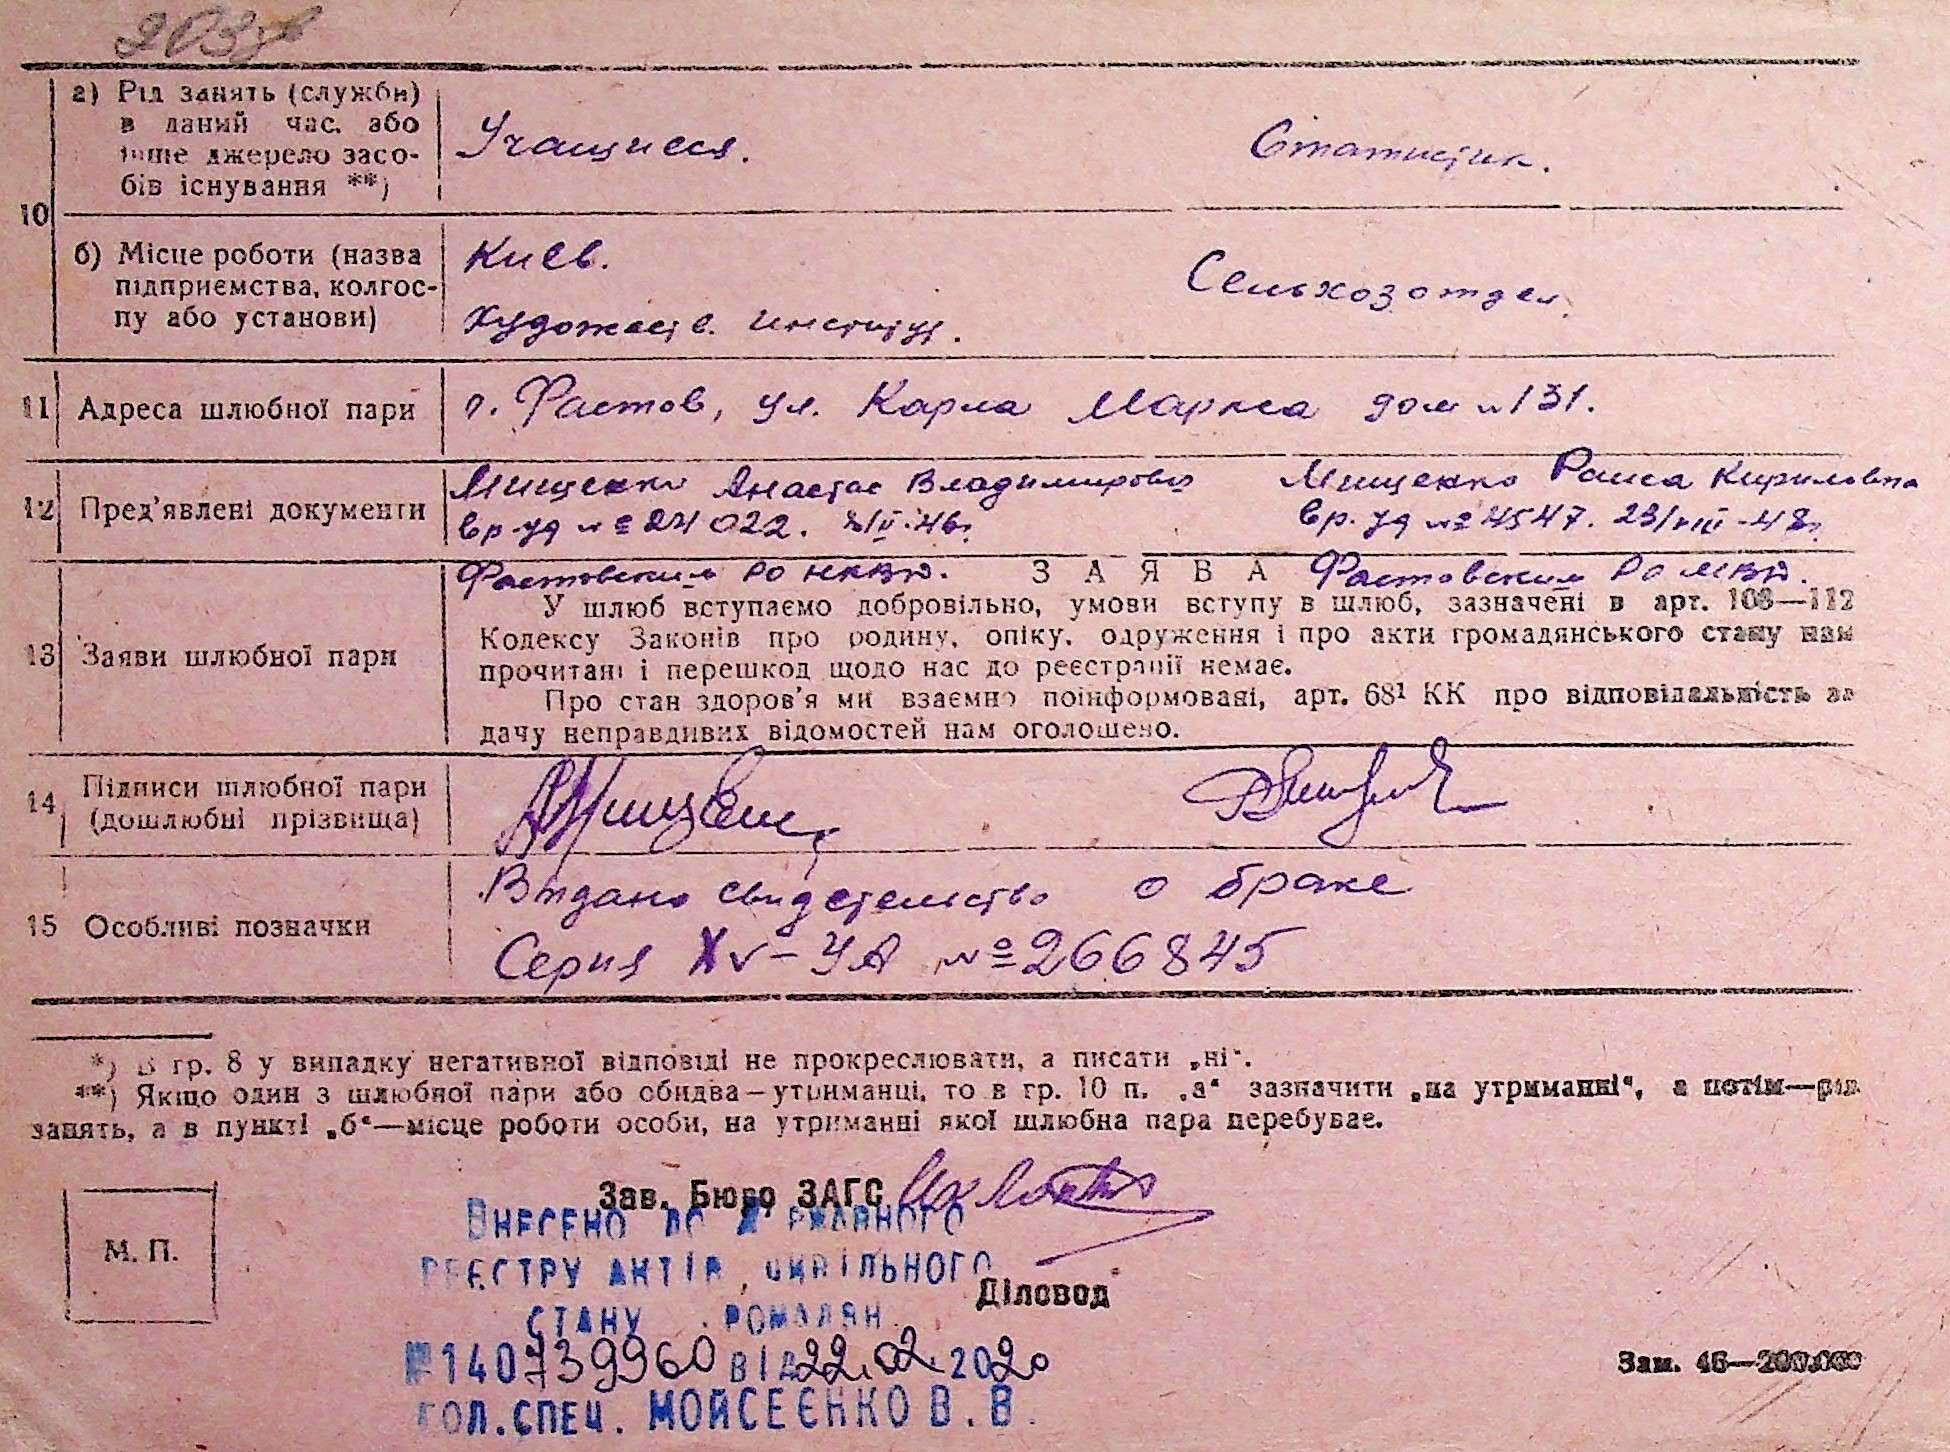 а) Рід занять (службн)
в даний час. або
інше джерело засо-
бів існування **)
Учащийся.
Статистик.
10
б) Місце роботи (назва
підприємства, колгос-
пу або установи)
Киев.
Художеств. институт.
Сельхозотдел.
11 Адреса шлюбної пари
г. Фастов, ул. Карла Маркса дом №131.
12 Пред'явлені документи
Мищенко Анастас Владимирович
вр. уд № 24022. 46г.
Фастовским РО НКВД.
Мищенко Раиса Кириловна
вр. уд № 4547. 23/VIII-48г.
Фастовским РО МВД.
13 Заяви шлюбної пари
ЗАЯВА
У шлюб вступаємо добровільно, умови вступу в шлюб, зазначені в арт. 108—112
Кодексу Законів про родину, опіку, одруження і про акти громадянського стану нам
прочитані і перешкод щодо нас до реєстрації немає.
Про стан здоров'я ми взаємно поінформовані, арт. 68¹ КК про відповідальність за
дачу неправдивих відомостей нам оголошено.
14 Підписи шлюбної пари
(дошлюбні прізвища)
15 Особливі позначки
Видано свидетельство о браке
Серия XV-УА №266845
*) В гр. 8 у випадку негативної відповіді не прокреслювати, а писати „ні".
**) Якщо один з шлюбної пари або обидва—утриманці, то в гр. 10 п. „а" зазначити „на утриманні", а потім—рід
занять, а в пункті „б"—місце роботи особи, на утриманні якої шлюбна пара перебуває.
М. П.
Зав. Бюро ЗАГС
Внесено до Державного
реєстру актів цивільного
Діловод
стану громадян
№140739960 від 22.02.2020
гол.спец. Мойсеєнко В.В.
Зам. 46—200.000